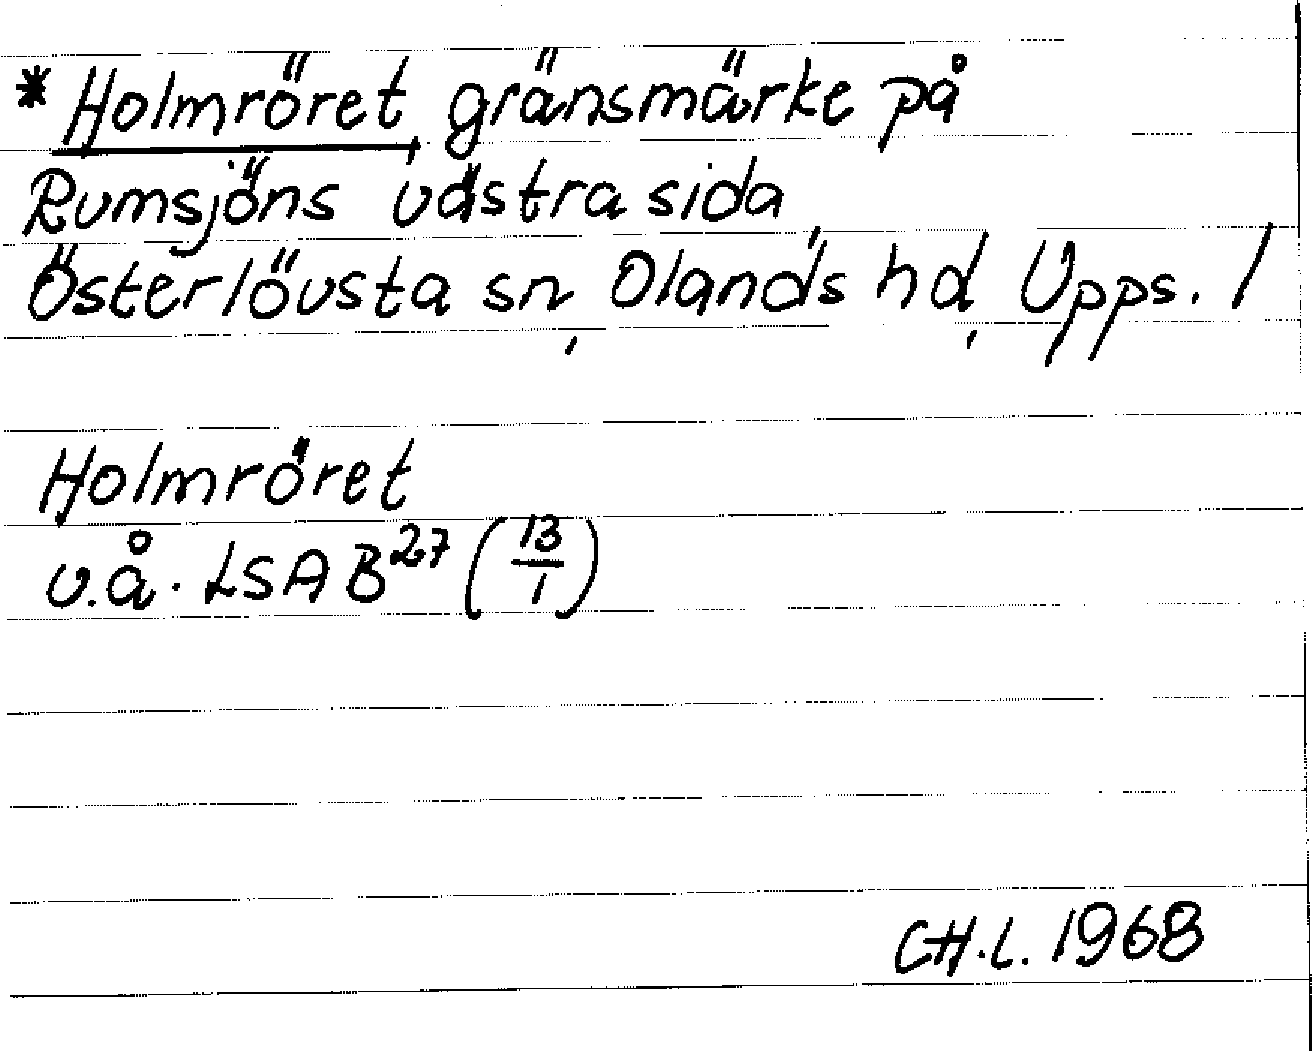 * Holmröret, gränsmärke på
Rumsjöns västra sida
Österlövsta sn, Olands hd, Upps. l
Holmröret
u.å. LSA B27 (13/1)
CH.L. 1968